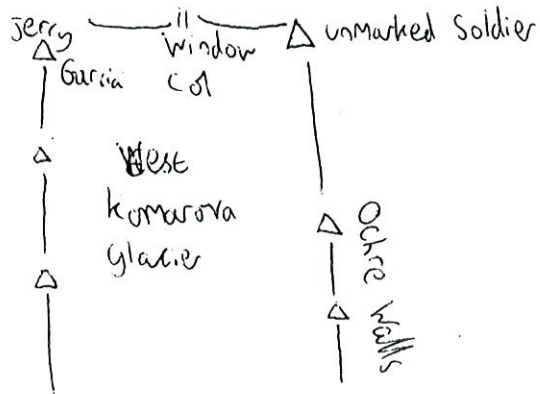 Jerry
Garcia
Window
Col
unmarked Soldier
West
Komarova
glacier
Ochre Walls